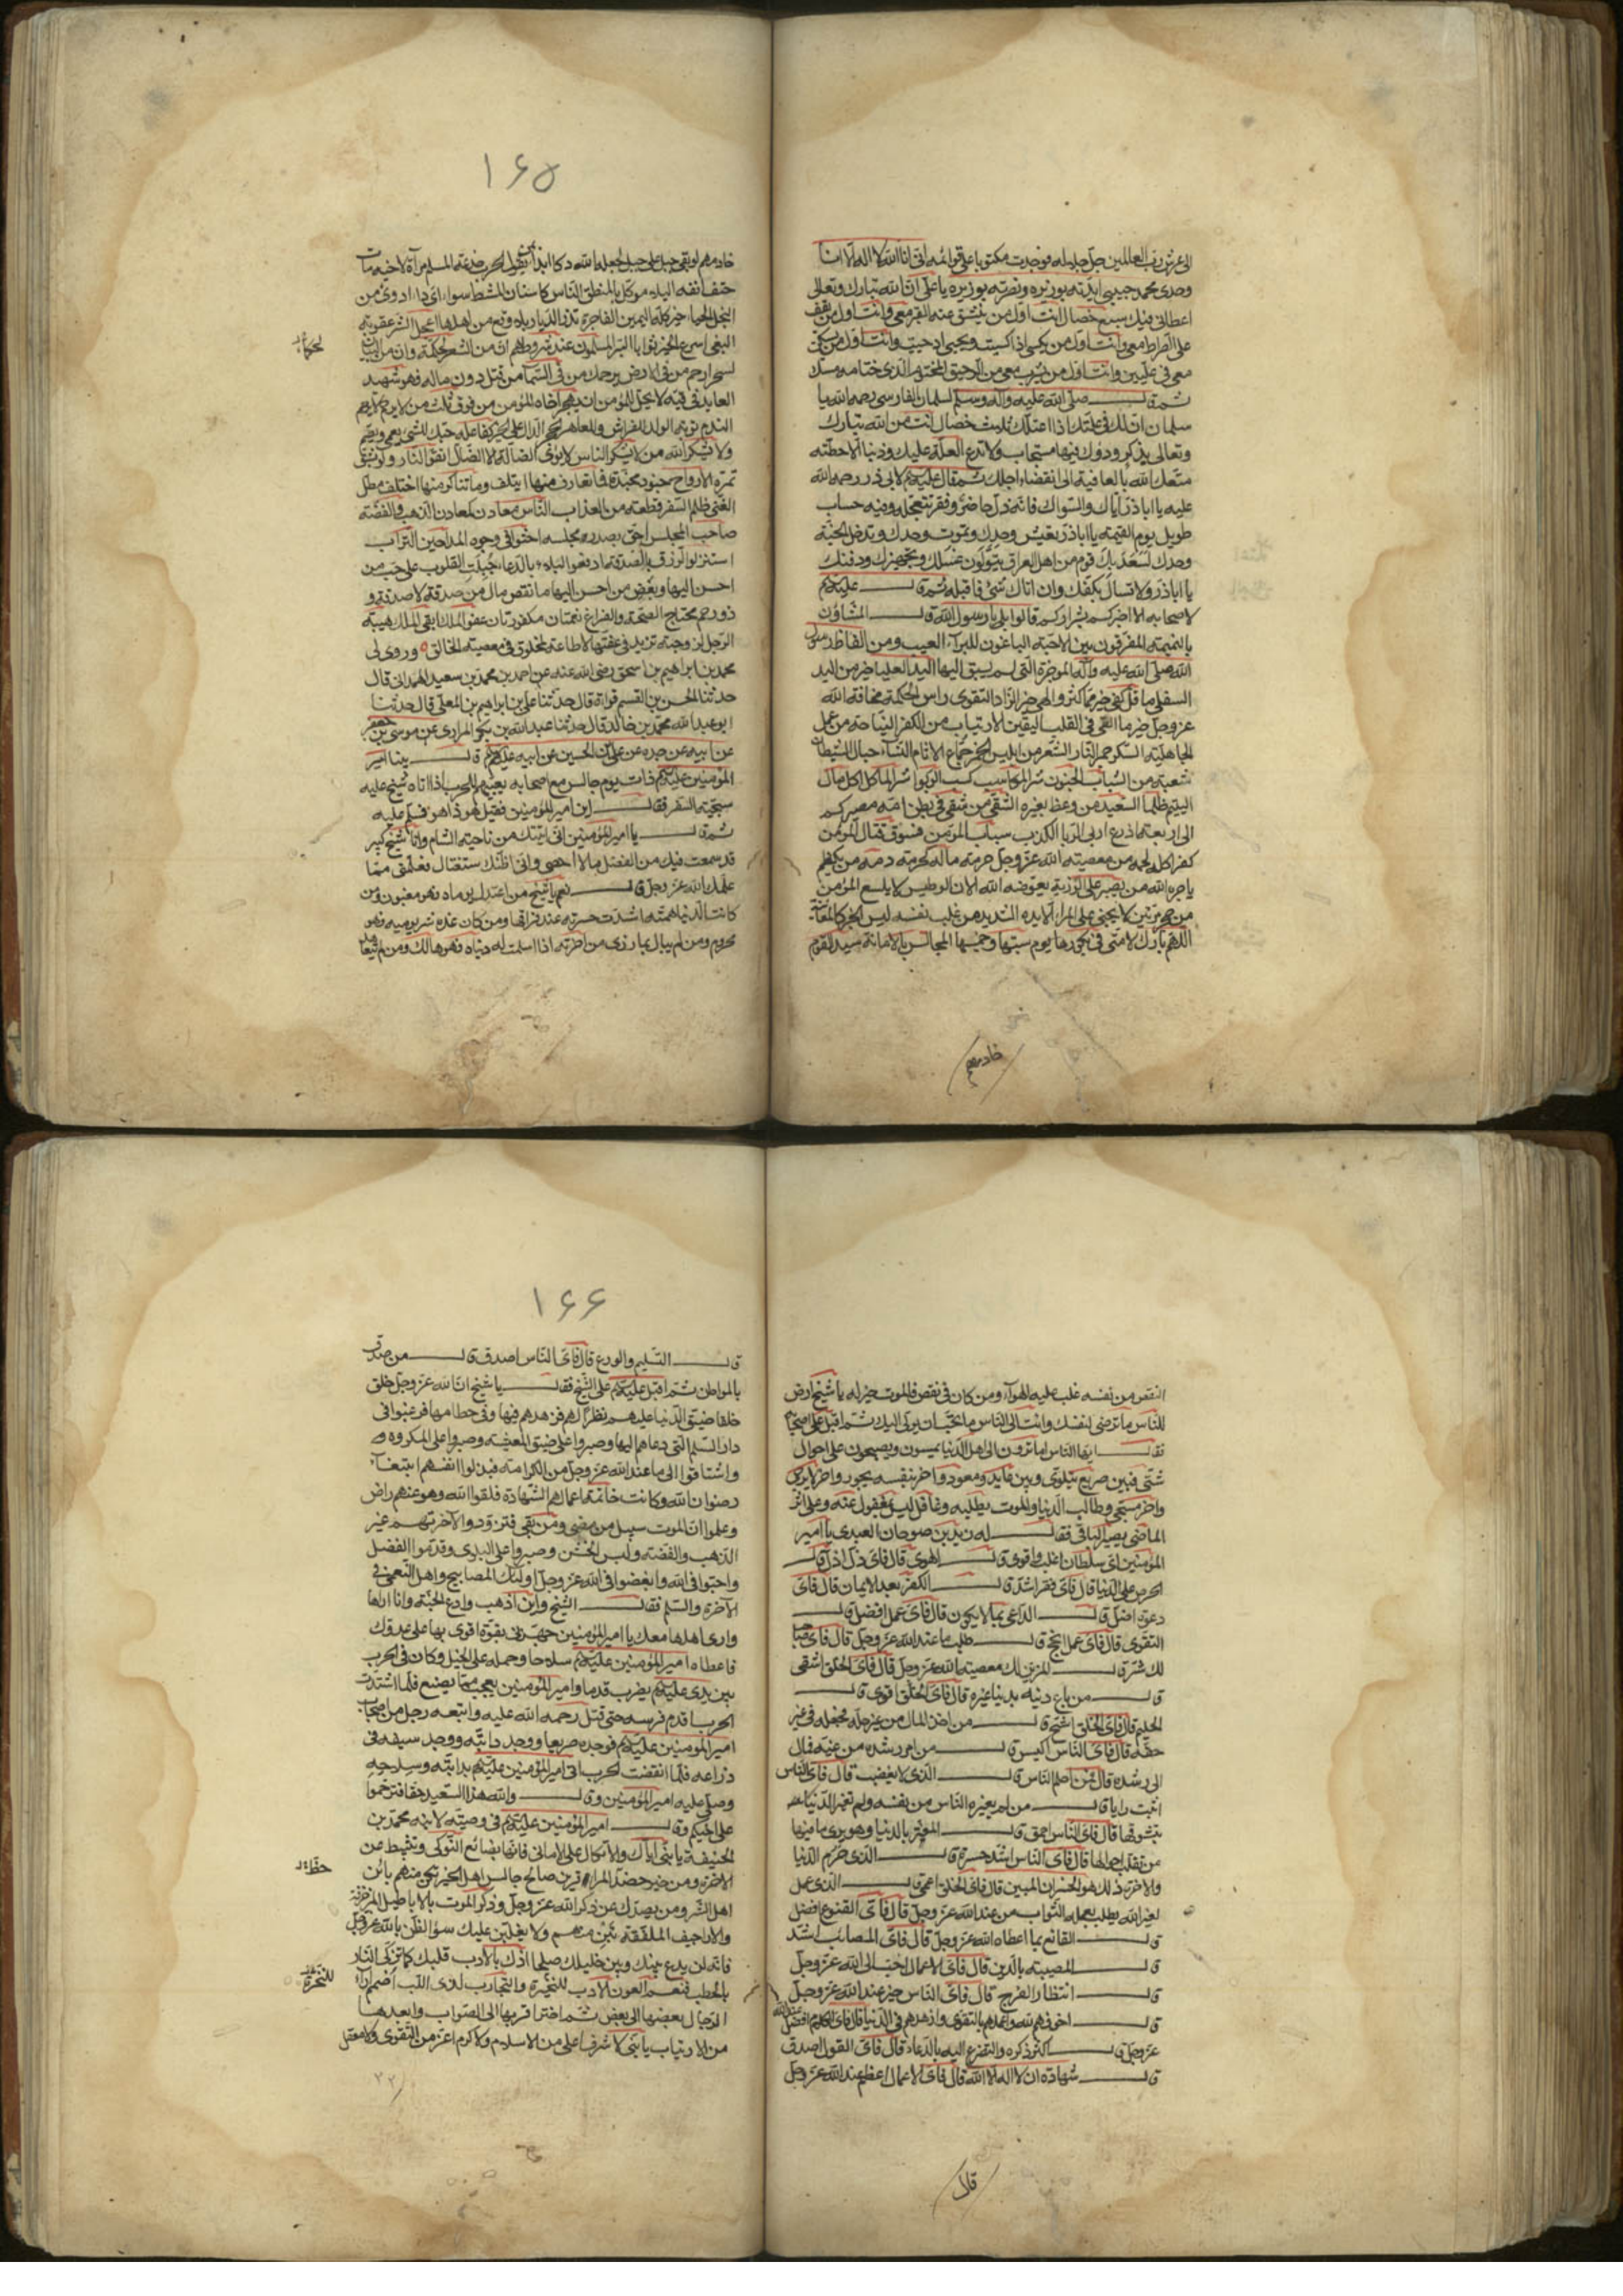 الى عرش رب العالمين جل جلاله فوجدت مكتوبا على قوائمه انى انا الله لا اله الا انا
وحدى محمد حبيبى ايدته بوزيره ونصرته بوزيره يا على ان الله تبارك وتعالى
اعطانى فيك سبع خصال انت اول من ينشق عنه القبر معى وانت اول من يقف
على الصراط معى وانت اول من يكسى اذا كسيت ويحيى اذا حييت وانت اول من يسكن
معى فى عليين وانت اول من يشرب معى من الرحيق المختوم الذى ختامه مسك
ثم قال صلى الله عليه وآله وسلم لسلمان الفارسى رحمه الله يا
سلمان ان لك فى علتك اذا اعتللت ثلث خصال انت من الله تبارك
وتعالى بذكر ودعاؤك فيها مستجاب ولا تدع العلة عليك ذنبا الا حطته
متعك الله بالعافية الى انقضاء اجلك ثم قال عليه السلم لابى ذر رحمه الله
عليه يا اباذر اياك والسؤال فانه ذل حاضر وفقر تتعجله وفيه حساب
طويل يوم القيمة يا اباذر تعيش وحدك وتموت وحدك وتدخل الجنة
وحدك يسعد بك قوم من اهل العراق يتولون غسلك وتجهيزك ودفنك
يا اباذر ولا تسال بكفك وان اتاك شئ فاقبله ثم قال عليه السلم
لاصحابه الا اخبركم بشراركم قالوا بلى يا رسول الله قال المشاؤن
بالنميمة المفرقون بين الاحبة الباغون للبرآء العيب ومن الفاظ رسول
الله صلى الله عليه وآله الموجزة التى لم يسبق اليها اليد العليا خير من اليد
السفلى ما قل وكفى خير مما كثر والهى خير الزاد التقوى راس الحكمة مخافة الله
عز وجل خير ما القى فى القلب اليقين الارتياب من الكفر النياحة من عمل
الجاهلية السكر جمر النار الشعر من ابليس الخمر جماع الاثام النساء حبال الشيطان
شعبة من الشباب الجنون شر المكاسب كسب الربوا شر الماكل اكل مال
اليتيم ظلما السعيد من وعظ بغيره الشقى من شقى فى بطن امه مصيركم
الى اربعة اذرع اربى الربا الكذب سباب المؤمن فسوق قتال المؤمن
كفر اكل لحمه من معصية الله عز وجل حرمة ماله كحرمة دمه من يكظم
ياجره الله من يصبر على الرزية يعوضه الله الان الوطيس لا يلسع المؤمن
من جحر مرتين لا يجنى على المرء الا يده الشديد من غلب نفسه ليس الخبر كالمعاينة
اللهم بارك لامتى فى بكورها يوم سبتها وخميسها المجالس بالامانة سيد القوم
خادمهم
١۶۵
خادمهم لو بغى جبل على جبل لجعله الله دكا ابدا بمن تعول الحرب خدعة المسلم مرآة لاخيه مات
حتف انفه البلاء موكل بالمنطق الناس كاسنان المشط سواء اى داء ادوى من
البخل الحياء خير كله اليمين الفاجرة تذر الديار بلاقع من اهلها اعجل الشر عقوبة
البغى اسرع الخير ثوابا البر المسلمون عند شروطهم ان من الشعر لحكمة وان من البيان
لسحرا ارحم من فى الارض يرحمك من فى السمآء من قتل دون ماله فهو شهيد
العائد فى قيئه لا يحل للمؤمن ان يهجر اخاه المؤمن من فوق ثلث من لا يرحم لا يرحم
الندم توبة الولد للفراش وللعاهر الحجر الدال على الخير كفاعله حبك للشئ يعمى ويصم
ولا يشكر الله من لا يشكر الناس لا يؤوى الضالة الا الضال اتقوا النار ولو بشق
تمرة الارواح جنود مجندة فما تعارف منها ايتلف وما تناكر منها اختلف مطل
الغنى ظلم السفر قطعة من العذاب الناس معادن كمعادن الذهب والفضة
صاحب المجلس احق بصدر مجلسه احثوا فى وجوه المداحين التراب
استنزلوا الرزق بالصدقة ادفعوا البلاء بالدعاء جبلت القلوب على حب من
احسن اليها وبغض من احسن اليها ما نقص مال من صدقة لا صدقة و
ذو رحم محتاج الصحة والفراغ نعمتان مكفورتان عفو الملك ابقى للملك هيبة
الرجل لزوجته تزيد فى عفتها لا طاعة لمخلوق فى معصية الخالق ٥ وروى لى
محمد بن ابراهيم بن اسحق رضى الله عنه عن احمد بن محمد بن سعيد الهمدانى قال
حدثنا الحسن بن القسم قراءة قال حدثنا على بن ابراهيم بن المعلى قال حدثنا
ابو عبد الله محمد بن خالد قال حدثنا عبد الله بن بكر المرادى عن موسى بن جعفر
عن ابيه عن جده عن على بن الحسين عن ابيه عليهم السلم قال بينا امير
المؤمنين عليه السلم ذات يوم جالس مع اصحابه يعبيهم للحرب اذا اتاه شيخ عليه
سحبة السفر فقال اين امير المؤمنين فقيل هو ذا هو فسلم عليه
ثم قال يا امير المؤمنين انى اتيتك من ناحية الشام وانا شيخ كبير
قد سمعت فيك من الفضل ما لا احصى وانى اظنك ستغتال فعلمنى مما
علمك الله عز وجل قال نعم يا شيخ من اعتدل يوماه فهو مغبون ومن
كانت الدنيا همته اشتدت حسرته عند فراقها ومن كان غده شر يوميه فهو
محروم ومن لم يبال بما رزى من آخرته اذا سلمت له دنياه فهو هالك ومن لم يتعاهد
النقص من نفسه غلب عليه الهواء ومن كان فى نقص فالموت خير له يا شيخ ارض
للناس ما ترضى لنفسك وائت الى الناس ما تحب ان يؤتى اليك ثم اقبل على اصحابه
فقال ايها الناس اما ترون الى اهل الدنيا يمسون ويصبحون على احوال
شتى فبين صريع يتلوى وبين عايد ومعود وآخر بنفسه يجود وآخر لا يرجى
وآخر مسجى وطالب الدنيا والموت يطلبه وغافل ليس بمغفول عنه وعلى اثر
الماضى يصير الباقى فقال له زيد بن صوحان العبدى يا امير
المؤمنين اى سلطان اغلب واقوى قال الهوى قال فاى ذل اذل قال
الحرص على الدنيا قال فاى فقر اشد قال الكفر بعد الايمان قال فاى
دعوة اضل قال الداعى بما لا يكون قال فاى عمل افضل قال
التقوى قال فاى عمل انجح قال طلب ما عند الله عز وجل قال فاى صاحب
لك شر قال المزين لك معصية الله عز وجل قال فاى الخلق اشقى
قال من باع دينه بدنيا غيره قال فاى الخلق اقوى قال
الحليم قال فاى الخلق اشح قال من اخذ المال من غير حله فجعله فى غير
حقه قال فاى الناس اكيس قال من ابصر رشده من غيه فمال
الى رشده قال فمن احلم الناس قال الذى لا يغضب قال فاى الناس
اثبت رايا قال من لم يغره الناس من نفسه ولم تغره الدنيا
بتشوفها قال فاى الناس احمق قال المغتر بالدنيا وهو يرى ما فيها
من تقلب احوالها قال فاى الناس اشد حسرة قال الذى حرم الدنيا
والآخرة ذلك هو الخسران المبين قال فاى الخلق اعمى قال الذى عمل
لغير الله يطلب بعمله الثواب من عند الله عز وجل قال فاى القنوع افضل
قال القانع بما اعطاه الله عز وجل قال فاى المصائب اشد
قال المصيبة بالدين قال فاى الاعمال احب الى الله عز وجل
قال انتظار الفرج قال فاى الناس خير عند الله عز وجل
قال اخوفهم لله واعملهم بالتقوى وازهدهم فى الدنيا قال فاى الكلام افضل عند الله
عز وجل قال كثرة ذكره والتضرع اليه بالدعاء قال فاى القول اصدق
قال شهادة ان لا اله الا الله قال فاى الاعمال اعظم عند الله عز وجل
قال
١۶۶
قال التسليم والورع قال فاى الناس اصدق قال من صدق
بالمواطن ثم اقبل عليه السلم على الشيخ فقال يا شيخ ان الله عز وجل خلق
خلقا ضيق الدنيا عليهم نظرا لهم فزهدهم فيها وفى حطامها فرغبوا فى
دار السلم التى دعاهم اليها وصبروا على ضيق المعيشة وصبروا على المكروه
واشتاقوا الى ما عند الله عز وجل من الكرامة فبذلوا انفسهم ابتغاء
رضوان الله وكانت خاتمة اعمالهم الشهادة فلقوا الله وهو عنهم راض
وعلموا ان الموت سبيل من مضى ومن بقى فتزودوا لآخرتهم غير
الذهب والفضة ولبس الخشن وصبروا على البلوى وقدموا الفضل
واحبوا فى الله وابغضوا فى الله عز وجل اولئك المصابيح واهل النعيم فى
الآخرة والسلم فقال الشيخ واين اذهب وادع الجنة وانا اراها
وارى اهلها معك يا امير المؤمنين جهزنى بقوة اقوى بها على عدوك
فاعطاه امير المؤمنين عليه السلم سلاحا وحمله على الخيل وكان فى الحرب
بين يدى عليه السلم يضرب قدما وامير المؤمنين يعجب مما يصنع فلما اشتدت
الحرب اقدم فرسه حتى قتل رحمه الله عليه واتبعه رجل من اصحاب
امير المؤمنين عليه السلم فوجده صريعا ووجد دابته ووجد سيفه فى
ذراعه فلما انقضت الحرب اتى امير المؤمنين عليه السلم بدابته وسلاحه
وصلى عليه امير المؤمنين وقال والله هذا السعيد حقا فترحموا
على اخيكم وقال امير المؤمنين عليه السلم فى وصيته لابنه محمد بن
الحنيفة يا بنى اياك والاتكال على الامانى فانها بضائع النوكى وتثبط عن
الآخرة ومن خير حظ المرء قرين صالح جالس اهل الخير تكن منهم باين
اهل الشر ومن يصدك عن ذكر الله عز وجل وذكر الموت بالاباطيل المزخرفة
والاراجيف الملفقة تبن منهم ولا يغلبن عليك سوء الظن بالله عز وجل
فانه لن يدع بينك وبين خليلك صلحا اذك بالادب قلبك كما تذكى النار
بالحطب فنعم العون الادب للنحيزة والتجارب لذى اللب اضمم آراء
الرجال بعضها الى بعض ثم اختر اقربها الى الصواب وابعدها
من الارتياب يا بنى لا شرف اعلى من الاسلام ولا كرم اعز من التقوى ولا معقل